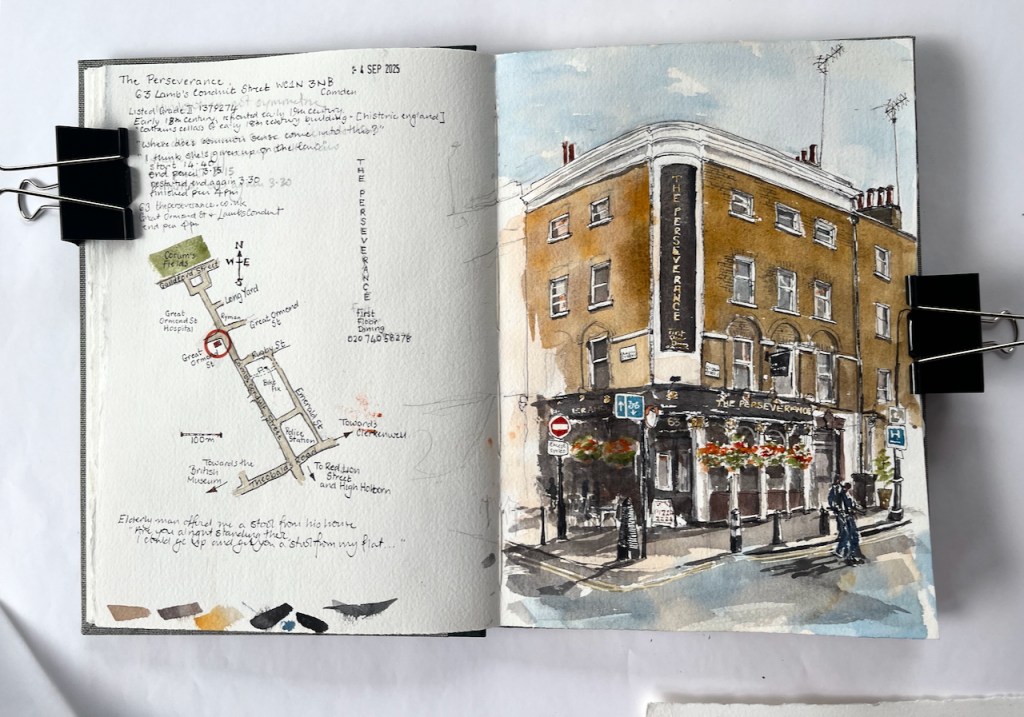 24 SEP 2025
The Perseverance.
63 Lamb's Conduit Street WC1N 3NB
Camden
Listed Grade II 1379274
Early 18th century, refronted early 19th century
"contains cellars of early 18th century building" - [historic england]
"Where does common sense come into this?"
"I think she's given up on the
start 14.40
end pencil 3.15
restarted end again 3.30
finished pen 4pm
63 theperseverance.co.uk
Great Ormond St & Lambs Conduit
end pen 4pm
THE PERSEVERANCE
First
Floor
Dining
020 7405 8278
N
W E
S
Coram's
Fields
Guildford Street
Long Yard
Ryman
Great Ormond
St
Great
Ormond St
Hospital
Great
Ormond
St
Rugby St
Lamb's Conduit Street
Emerald St
Police
Station
100m
Towards
Clerkenwell
Theobalds Road
Towards the
British
Museum
To Red Lion
Street
and High Holborn
Elderly man offered me a stool from his house
"Are you alright standing there
I could go up and get you a stool from my flat..."
THE PERSEVERANCE
First
THE PERSEVERANCE
H